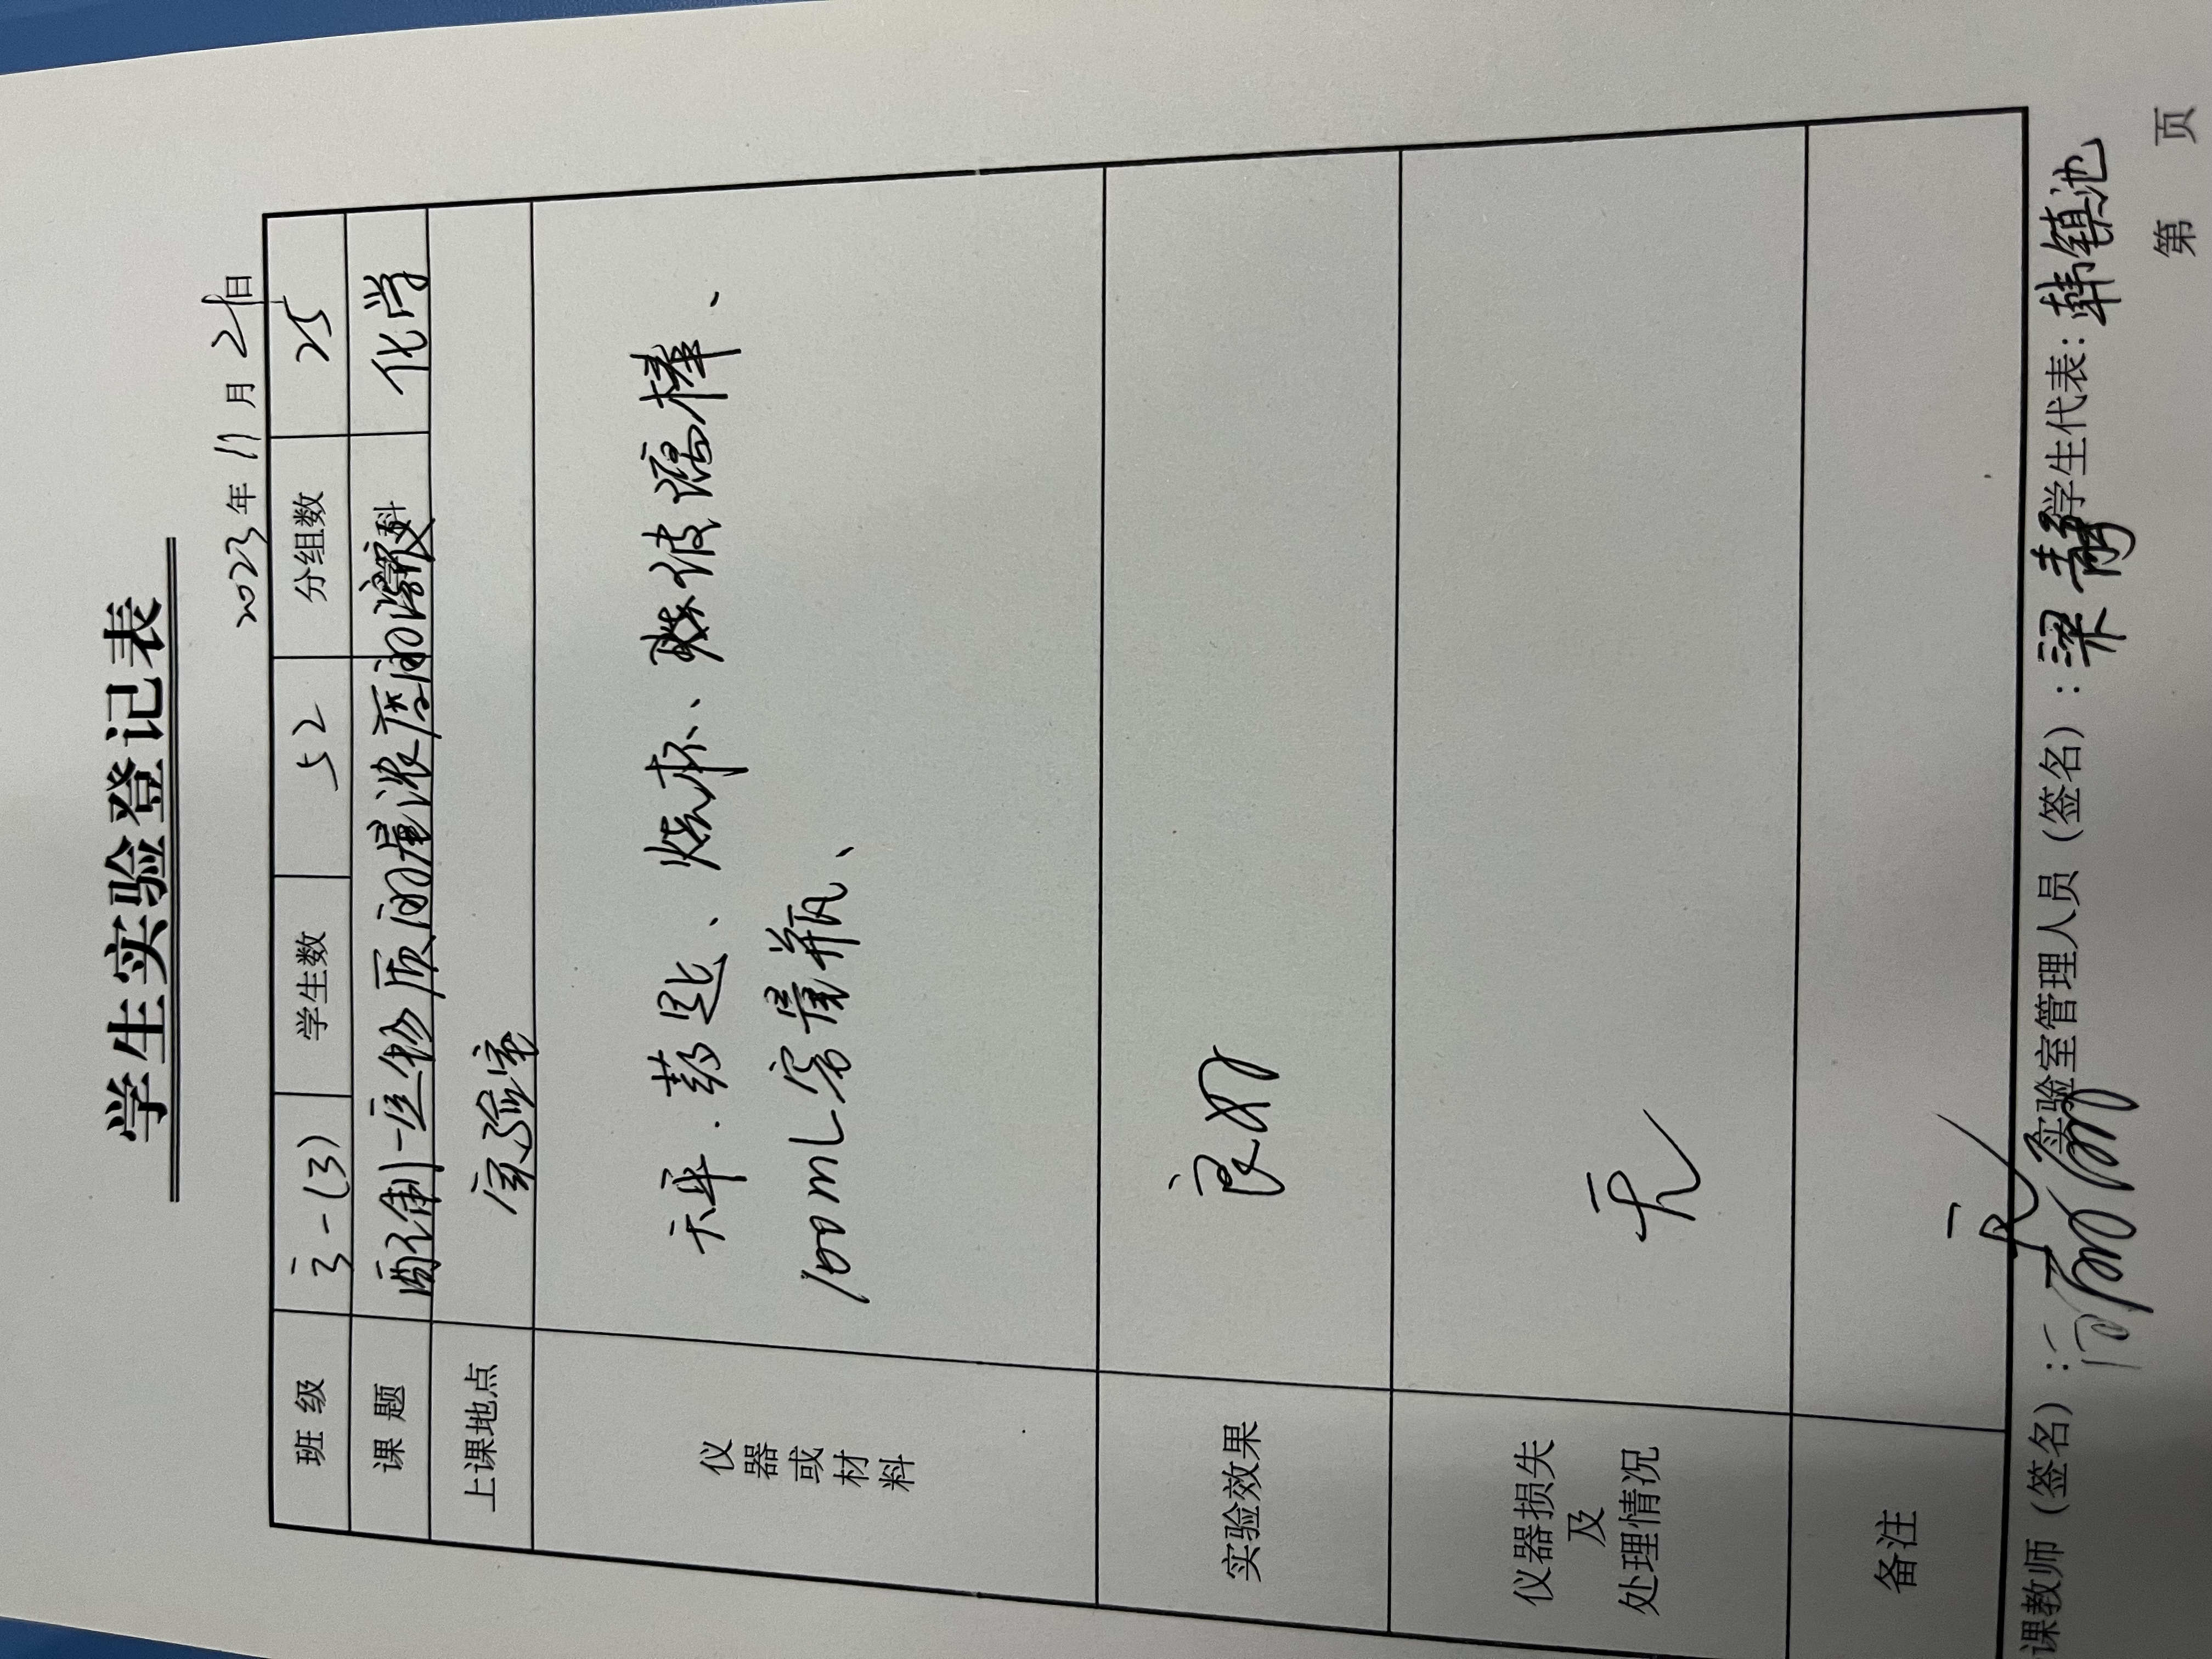 学生实验登记表
2023年11月2日
班 级 高一(3) 学生数 52 分组数 25
课 题 配制一定物质的量浓度的溶液 学科 化学
上课地点 实验室
仪器或材料 天平、药匙、烧杯、玻璃棒、
100mL容量瓶、
实验效果 良好
仪器损失及处理情况 无
备注 无
课教师（签名）： 实验室管理人员（签名）：梁静 学生代表：韩镇池
第 页